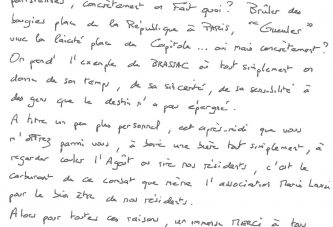 parisiennes, concrètement on fait quoi ? Brûler des
bougies place de la République à PARIS, "Gueuler"
vive la laïcité place du Capitole... oui mais concrètement ?
On prend l'exemple du BRASSAC où tout simplement on
donne de son temps, de sa sincérité, de sa sensibilité à
des gens que le destin n'a pas épargné.
A titre un peu plus personnel, cet après-midi que vous
m'offrez parmi vous, à boire une bière tout simplement, à
regarder couler l'Agoût ou rire nos résidents, c'est le
carburant de ce combat que mène l'association Marie Louise
pour le bien être de nos résidents.
Alors pour toutes ces raisons, un immense MERCI à tous